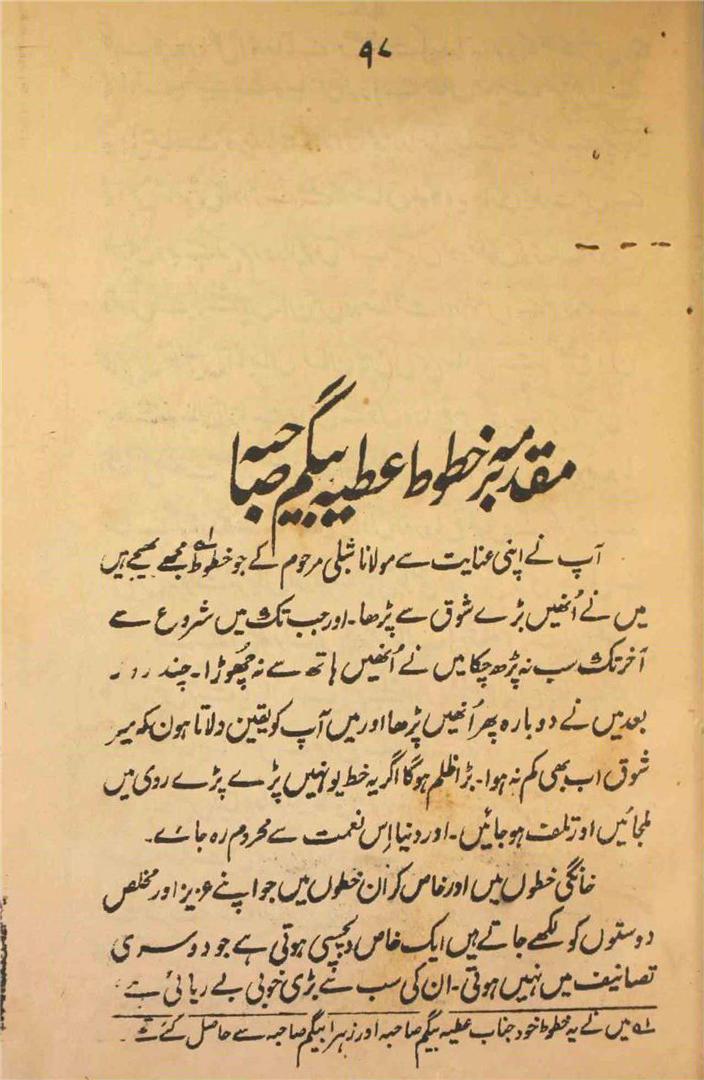 ۹۸
مقدمہ بر خطوط عطیہ بیگم صاحبہ
آپ نے اپنی عنایت سے مولانا شبلی مرحوم کے جو خطوط لہ مجھے بھیجے ہیں
میں نے اُنھیں بڑے شوق سے پڑھا۔ اور جب تک میں شروع سے
آخر تک سب نہ پڑھ چکا میں نے اُنھیں ہاتھ سے نہ چھوڑا۔ چند روز
بعد میں نے دوبارہ پھر اُنھیں پڑھا اور میں آپ کو یقین دلاتا ہون کہ میر
شوق اب بھی کم نہ ہوا۔ بڑا ظلم ہوگا اگر یہ خط یونہیں پڑے پڑے ردی میں
ملجائیں اور تلف ہو جائیں۔ اور دنیا اِس نعمت سے محروم رہ جائے۔
خانگی خطوں میں اور خاص کر ان خطوں میں جو اپنے عزیز اور مخلص
دوستوں کو لکھے جاتے ہیں ایک خاص دلچسپی ہوتی ہے جو دوسری
تصانیف میں نہیں ہوتی۔ ان کی سب سے بڑی خوبی بے ریائی ہے۔
لہ میں نے یہ خطوط خود جناب عطیہ بیگم صاحبہ اور زہرا بیگم صاحبہ سے حاصل کئے تھے۔